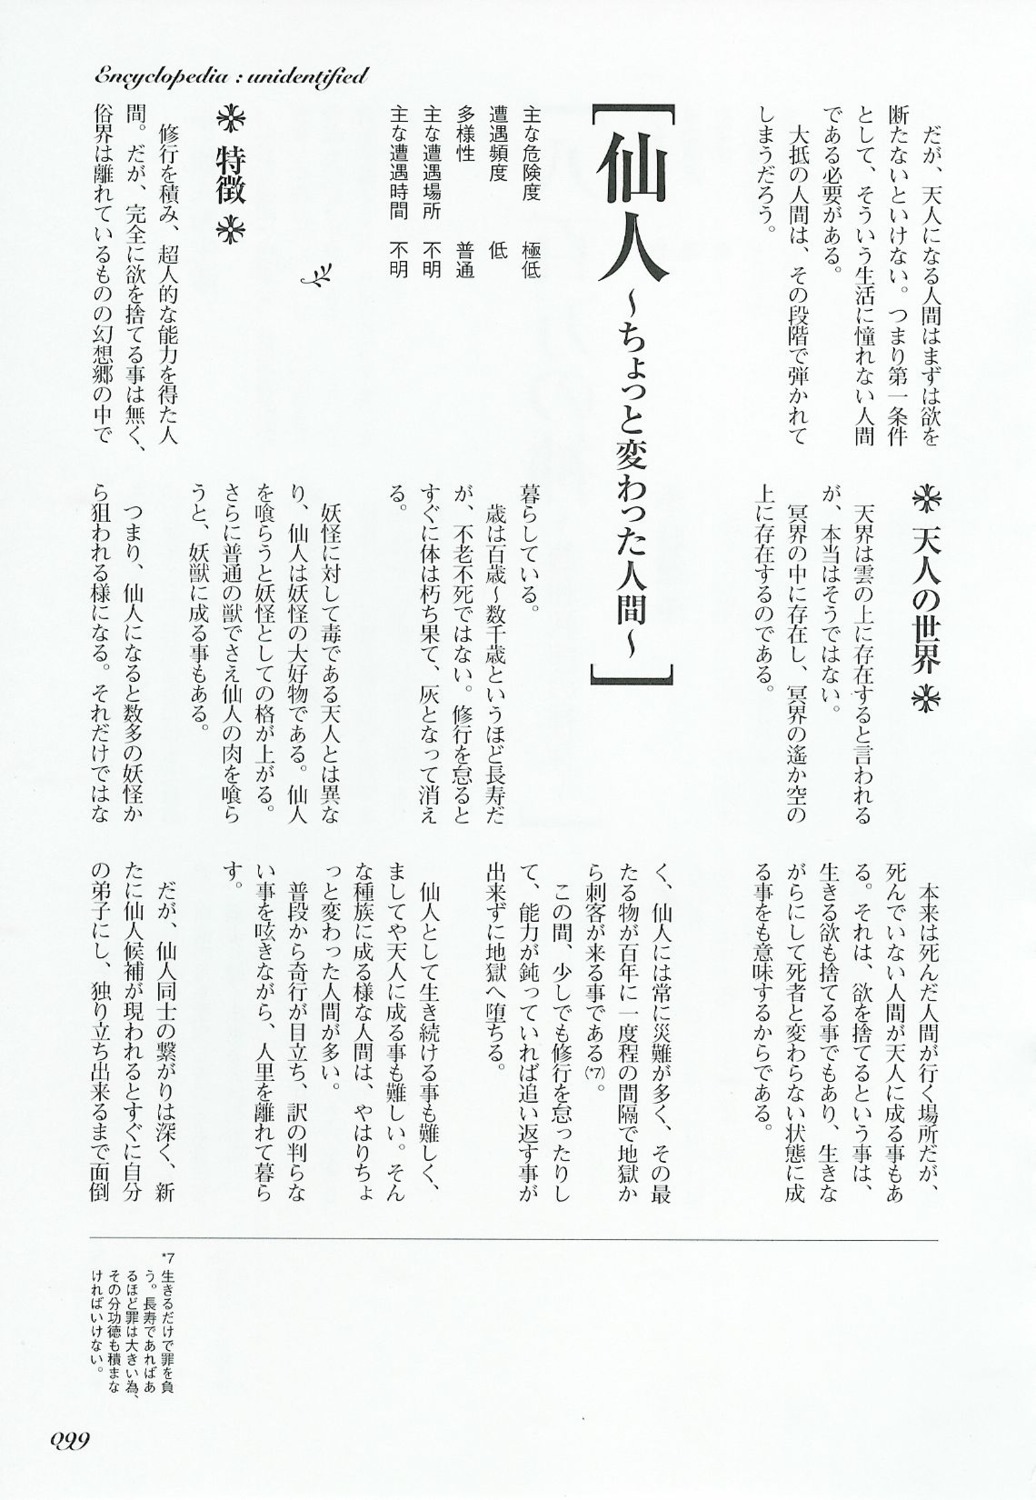 Encyclopedia : unidentified
だが、天人になる人間はまずは欲を
断たないといけない。つまり第一条件
として、そういう生活に憧れない人間
である必要がある。
大抵の人間は、その段階で弾かれて
しまうだろう。
❉ 天人の世界 ❉
天界は雲の上に存在すると言われる
が、本当はそうではない。
冥界の中に存在し、冥界の遙か空の
上に存在するのである。
本来は死んだ人間が行く場所だが、
死んでいない人間が天人に成る事もあ
る。それは、欲を捨てるという事は、
生きる欲も捨てる事でもあり、生きな
がらにして死者と変わらない状態に成
る事をも意味するからである。
[仙人 ～ちょっと変わった人間～]
主な危険度 極低
遭遇頻度 低
多様性 普通
主な遭遇場所 不明
主な遭遇時間 不明
❉ 特徴 ❉
修行を積み、超人的な能力を得た人
間。だが、完全に欲を捨てる事は無く、
俗界は離れているものの幻想郷の中で
暮らしている。
歳は百歳～数千歳というほど長寿だ
が、不老不死ではない。修行を怠ると
すぐに体は朽ち果て、灰となって消え
る。
妖怪に対して毒である天人とは異な
り、仙人は妖怪の大好物である。仙人
を喰らうと妖怪としての格が上がる。
さらに普通の獣でさえ仙人の肉を喰ら
うと、妖獣に成る事もある。
つまり、仙人になると数多の妖怪か
ら狙われる様になる。それだけではな
く、仙人には常に災難が多く、その最
たる物が百年に一度程の間隔で地獄か
ら刺客が来る事である(*7)。
この間、少しでも修行を怠ったりし
て、能力が鈍っていれば追い返す事が
出来ずに地獄へ堕ちる。
仙人として生き続ける事も難しく、
ましてや天人に成る事も難しい。そん
な種族に成る様な人間は、やはりちょ
っと変わった人間が多い。
普段から奇行が目立ち、訳の判らな
い事を呟きながら、人里を離れて暮ら
す。
だが、仙人同士の繋がりは深く、新
たに仙人候補が現われるとすぐに自分
の弟子にし、独り立ち出来るまで面倒
*7 生きるだけで罪を負
う。長寿であればあ
るほど罪は大きい為、
その分功徳も積まな
ければいけない。
099